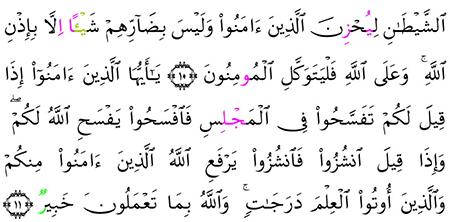 الشَّيْطَٰنِ لِيُحْزِنَ الَّذِينَ ءَامَنُوا۟ وَلَيْسَ بِضَآرِّهِمْ شَيْـًٔا اِلَّا بِإِذْنِ
اللَّهِ ۚ وَعَلَى اللَّهِ فَلْيَتَوَكَّلِ الْمُومِنُونَ ﴿١٠﴾ يَٰٓأَيُّهَا الَّذِينَ ءَامَنُوٓا۟ إِذَا
قِيلَ لَكُمْ تَفَسَّحُوا۟ فِى الْمَجْلِسِ فَافْسَحُوا۟ يَفْسَحِ اللَّهُ لَكُمْ ۖ
وَإِذَا قِيلَ انشُزُوا۟ فَانشُزُوا۟ يَرْفَعِ اللَّهُ الَّذِينَ ءَامَنُوا۟ مِنكُمْ
وَالَّذِينَ أُوتُوا۟ الْعِلْمَ دَرَجَٰتٍ ۚ وَاللَّهُ بِمَا تَعْمَلُونَ خَبِيرٌ ﴿١١﴾